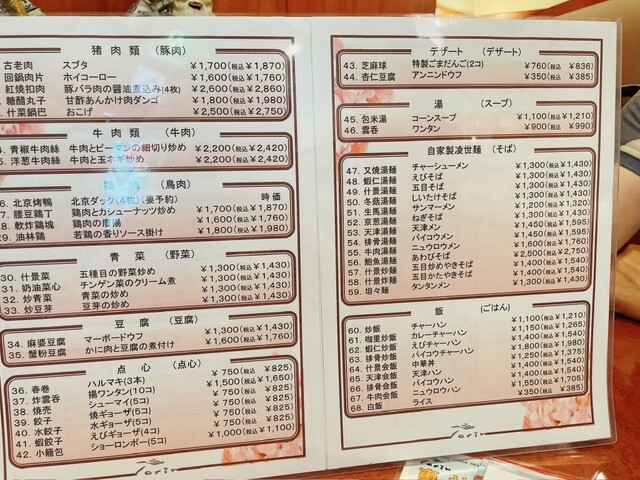 猪肉類 (豚肉)
古老肉 スブタ ¥1,700(税込¥1,870)
回鍋肉片 ホイコーロー ¥1,600(税込¥1,760)
紅焼扣肉 豚バラ肉の醤油煮込み(4枚) ¥2,600(税込¥2,860)
糖醋丸子 甘酢あんかけ肉ダンゴ ¥1,800(税込¥1,980)
什菜鍋巴 おこげ ¥2,500(税込¥2,750)
牛肉類 (牛肉)
青椒牛肉絲 牛肉とピーマンの細切り炒め ¥2,200(税込¥2,420)
洋葱牛肉絲 牛肉と玉ネギ炒め ¥2,200(税込¥2,420)
肉 (鳥肉)
北京烤鴨 北京ダック(4枚)(要予約) 時価
腰豆鶏丁 鶏肉とカシューナッツ炒め ¥1,700(税込¥1,870)
軟炸鶏塊 鶏肉の唐揚 ¥1,600(税込¥1,760)
29. 油林鶏 若鶏の香りソース掛け ¥1,800(税込¥1,980)
青菜 (野菜)
30. 什景菜 五種目の野菜炒め ¥1,300(税込¥1,430)
31. 奶油菜心 チンゲン菜のクリーム煮 ¥1,300(税込¥1,430)
32. 炒青菜 青菜の炒め ¥1,300(税込¥1,430)
33. 炒豆芽 豆芽の炒め ¥1,300(税込¥1,430)
豆腐 (豆腐)
34. 麻婆豆腐 マーボードウフ ¥1,300(税込¥1,430)
35. 蟹粉豆腐 かに肉と豆腐の煮付け ¥1,600(税込¥1,760)
点心 (点心)
36. 春巻 ハルマキ(3本) ¥750(税込¥825)
37. 炸雲呑 揚ワンタン(10コ) ¥1,500(税込¥1,650)
38. 焼売 シューマイ(5コ) ¥750(税込¥825)
39. 餃子 焼ギョーザ(5コ) ¥750(税込¥825)
40. 水餃子 水ギョーザ(5コ) ¥750(税込¥825)
41. 蝦餃子 えびギョーザ(4コ) ¥750(税込¥825)
42. 小籠包 ショーロンポー(5コ) ¥1,000(税込¥1,100)
デザート (デザート)
43. 芝麻球 特製ごまだんご(2コ) ¥760(税込¥836)
44. 杏仁豆腐 アンニンドウフ ¥350(税込¥385)
湯 (スープ)
45. 包米湯 コーンスープ ¥1,100(税込¥1,210)
46. 雲呑 ワンタン ¥900(税込¥990)
自家製凌世麺 (そば)
47. 叉焼湯麺 チャーシューメン ¥1,300(税込¥1,430)
48. 蝦仁湯麺 えびそば ¥1,300(税込¥1,430)
49. 什景湯麺 五目そば ¥1,300(税込¥1,430)
50. 冬菇湯麺 しいたけそば ¥1,300(税込¥1,430)
51. 生馬湯麺 サンマーメン ¥1,200(税込¥1,320)
52. 京葱湯麺 ねぎそば ¥1,300(税込¥1,430)
53. 天津湯麺 天津メン ¥1,450(税込¥1,595)
54. 排骨湯麺 パイコウメン ¥1,450(税込¥1,595)
55. 牛肉湯麺 ニュウロウメン ¥1,600(税込¥1,760)
56. 鮑魚湯麺 あわびそば ¥2,500(税込¥2,750)
57. 什景炒麺 五目炒めやきそば ¥1,300(税込¥1,430)
58. 什景炸麺 五目かたやきそば ¥1,300(税込¥1,430)
59. 坦々麺 タンタンメン ¥1,300(税込¥1,430)
飯 (ごはん)
60. 炒飯 チャーハン ¥1,100(税込¥1,210)
61. 咖哩炒飯 カレーチャーハン ¥1,150(税込¥1,265)
62. 蝦仁炒飯 えびチャーハン
63. 排骨炒飯 パイコウチャーハン
64. 什景会飯 中華丼
65. 天津会飯 天津ハン
66. 排骨会飯 パイコウハン
67. 牛肉会飯 ニュウロウハン ¥1,550(税込¥1,705)
68. 白飯 ライス ¥350(税込¥385)